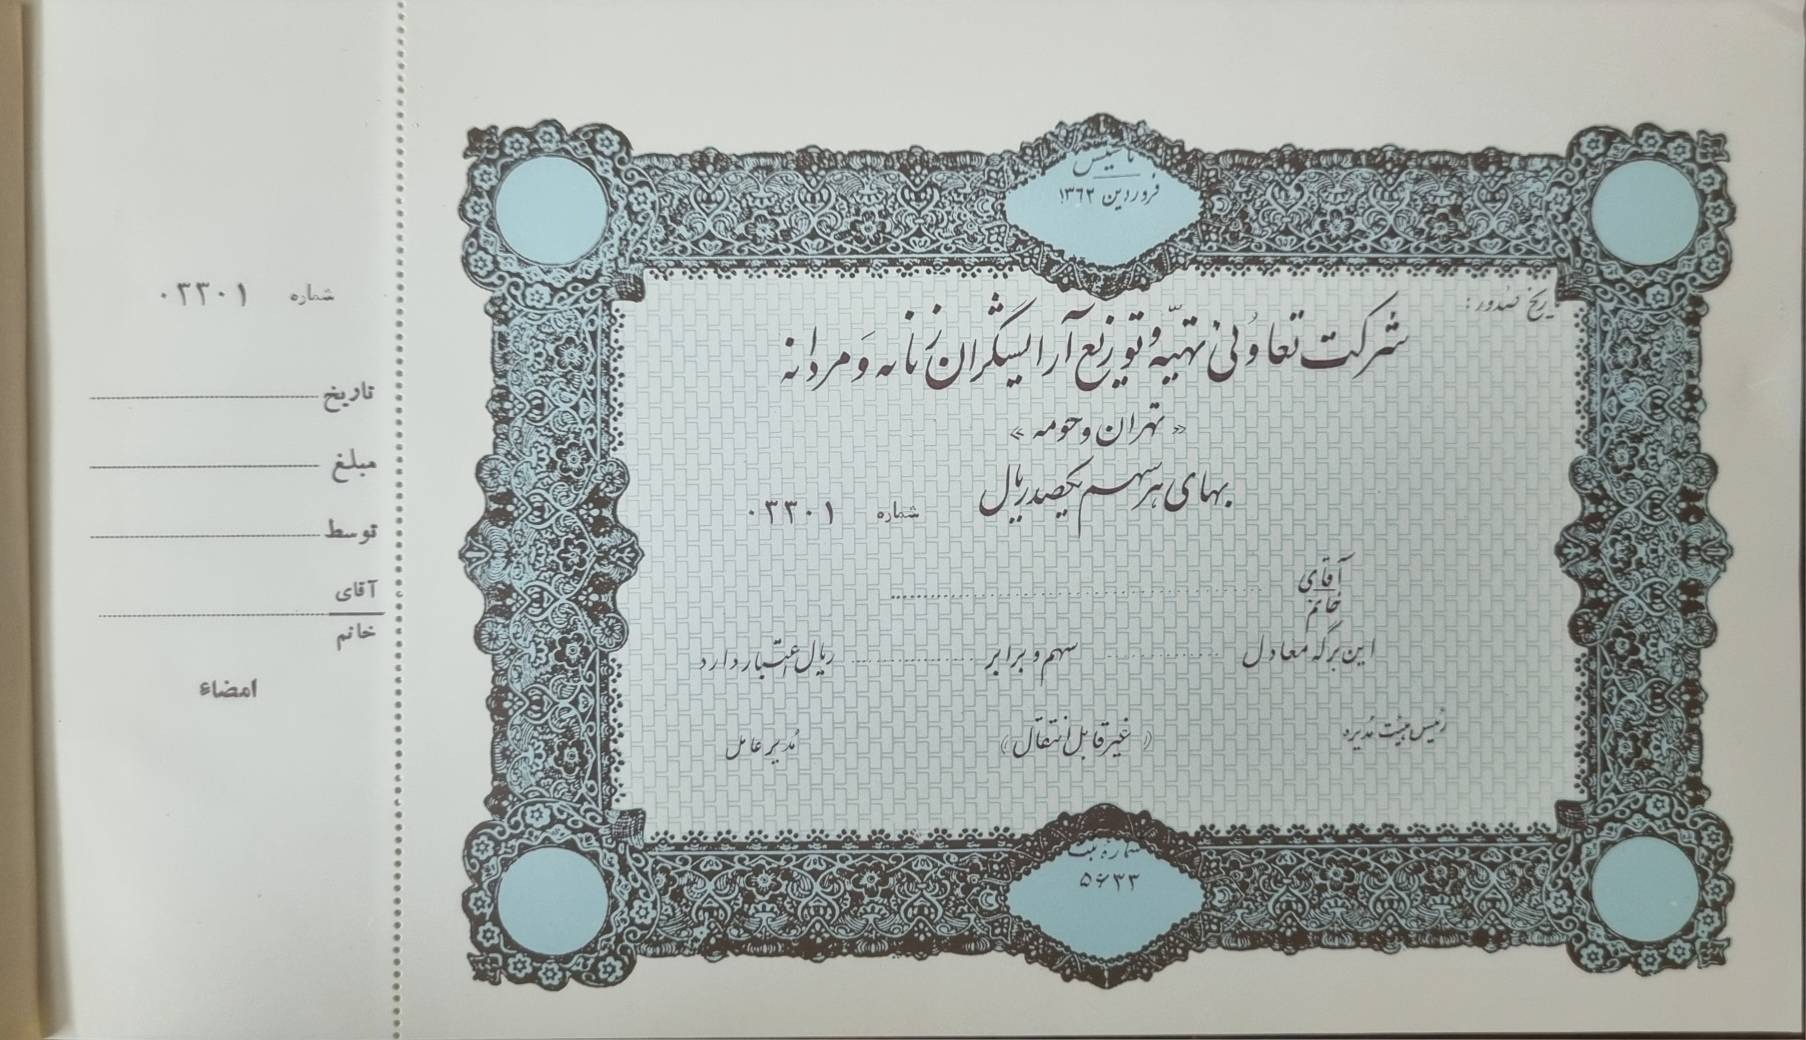 تأسیس
فروردین ۱۳۶۲
تاریخ صدور:
شرکت تعاونی تهیّه و توزیع آرایشگران زنانه و مردانه
«تهران و حومه»
بهای هر سهم یکصد ریال
شماره ۰۳۳۰۱
آقای
خانم
این برگه معادل .......... سهم و برابر .......... ریال اعتبار دارد
رئیس هیئت مدیره
(غیر قابل انتقال)
مدیر عامل
شماره ثبت
۵۶۳۳
شماره ۰۳۳۰۱
تاریخ
مبلغ
توسط
آقای
خانم
امضاء